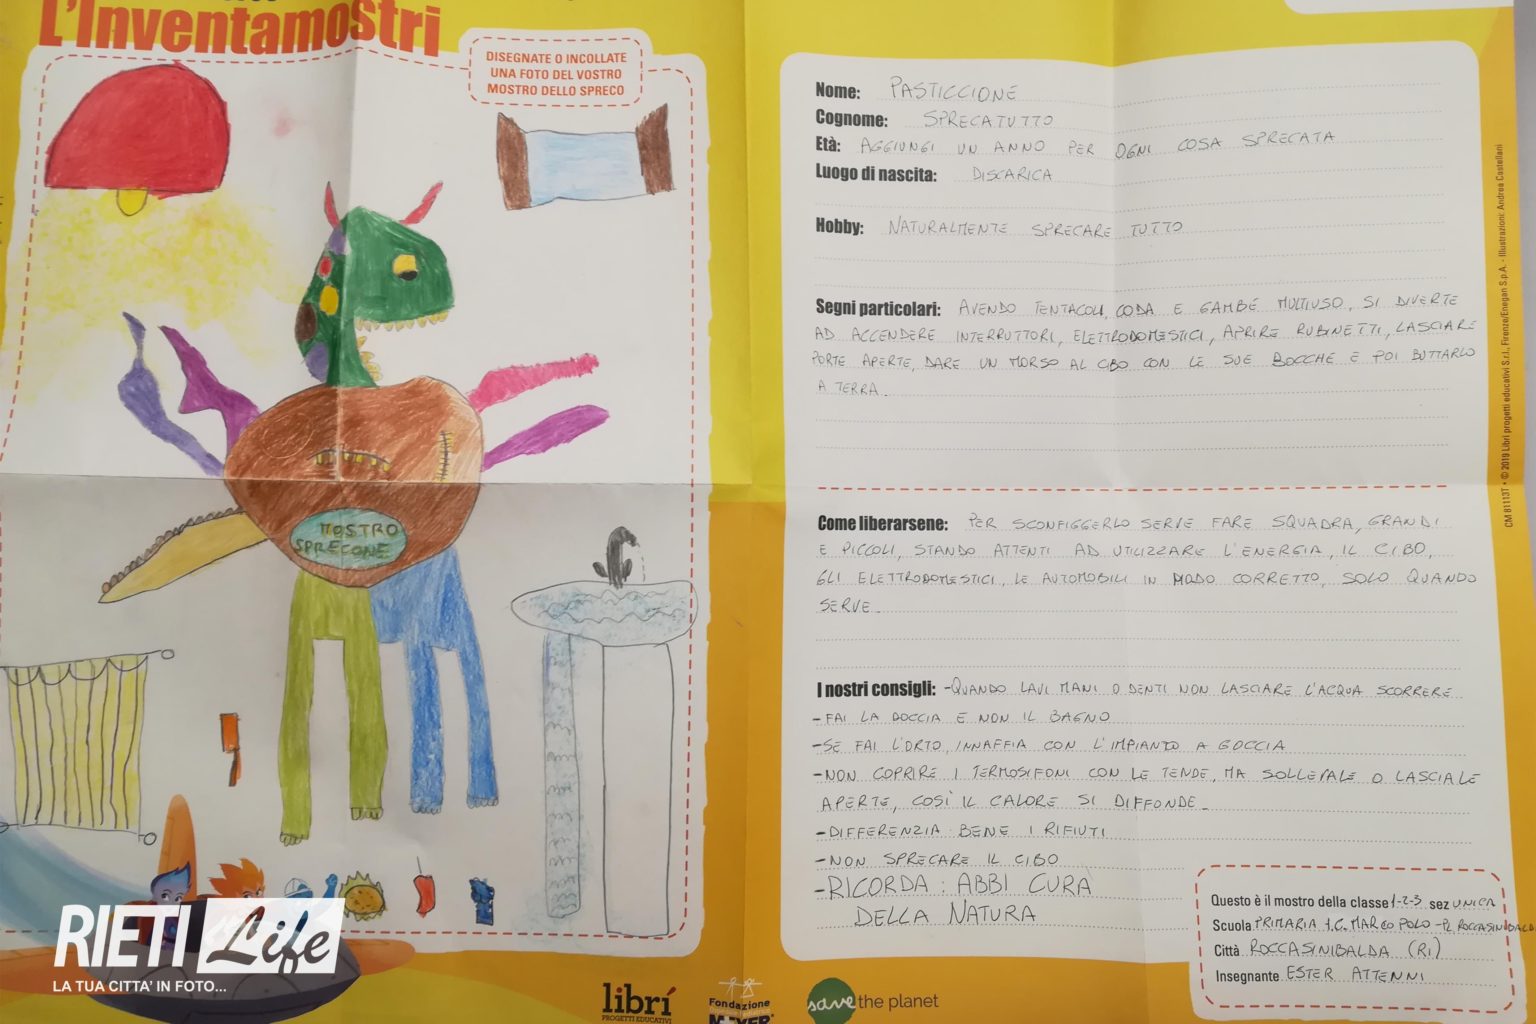 L'Inventamostri
DISEGNATE O INCOLLATE
UNA FOTO DEL VOSTRO
MOSTRO DELLO SPRECO
MOSTRO
SPRECONE
Nome: PASTICCIONE
Cognome: SPRECATUTTO
Età: AGGIUNGI UN ANNO PER OGNI COSA SPRECATA
Luogo di nascita: DISCARICA
Hobby: NATURALMENTE SPRECARE TUTTO
Segni particolari: AVENDO TENTACOLI, CODA E GAMBE MULTIUSO, SI DIVERTE
AD ACCENDERE INTERRUTTORI, ELETTRODOMESTICI, APRIRE RUBINETTI, LASCIARE
PORTE APERTE, DARE UN MORSO AL CIBO CON LE SUE BOCCHE E POI BUTTARLO
A TERRA.
Come liberarsene: PER SCONFIGGERLO SERVE FARE SQUADRA, GRANDI
E PICCOLI, STANDO ATTENTI AD UTILIZZARE L'ENERGIA, IL CIBO,
GLI ELETTRODOMESTICI, LE AUTOMOBILI IN MODO CORRETTO, SOLO QUANDO
SERVE.
I nostri consigli: -QUANDO LAVI MANI O DENTI NON LASCIARE L'ACQUA SCORRERE
-FAI LA DOCCIA E NON IL BAGNO
-SE FAI L'ORTO, INNAFFIA CON L'IMPIANTO A GOCCIA
-NON COPRIRE I TERMOSIFONI CON LE TENDE, MA SOLLEVALE O LASCIALE
APERTE, COSÌ IL CALORE SI DIFFONDE.
-DIFFERENZIA BENE I RIFIUTI
-NON SPRECARE IL CIBO
-RICORDA: ABBI CURA
DELLA NATURA
Questo è il mostro della classe 1-2-3 sez UNICA
Scuola PRIMARIA I.C. MARCO POLO - PL ROCCASINIBALDA
Città ROCCASINIBALDA (RI)
Insegnante ESTER ATTENNI
CM 81113T • © 2019 Librì progetti educativi S.r.l., Firenze/Enegan S.p.A. - Illustrazioni: Andrea Castellani
RIETI Life
LA TUA CITTA' IN FOTO...
librì
PROGETTI EDUCATIVI
Fondazione
MEYER
save the planet